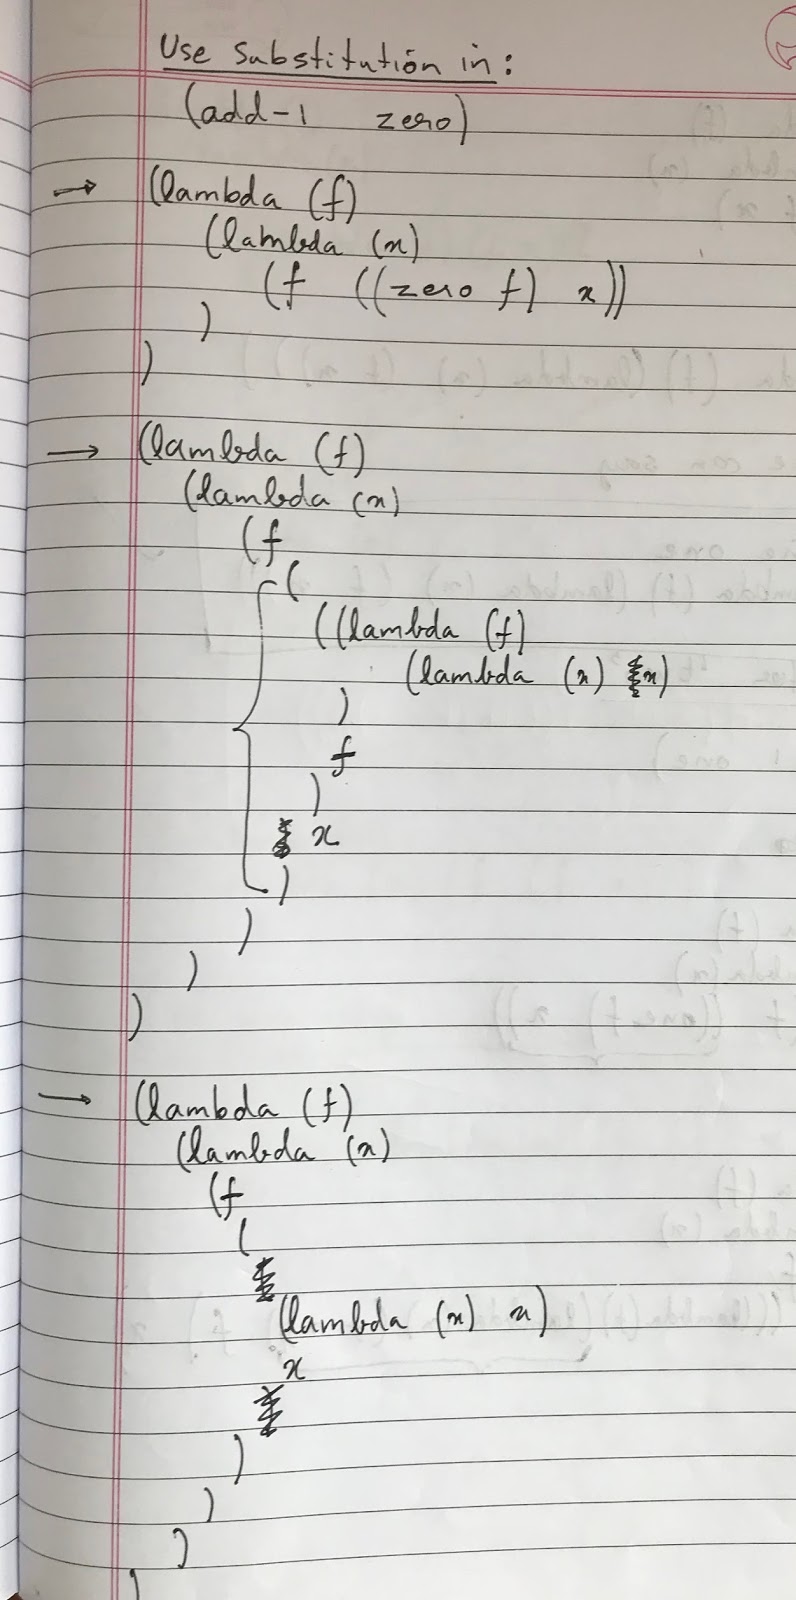 Use substitution in:
(add-1 zero)
→ (lambda (f)
(lambda (x)
(f ((zero f) x))
)
)
→ (lambda (f)
(lambda (x)
(f
(
((lambda (f)
(lambda (x) x)
)
f
)
x
)
)
)
)
→ (lambda (f)
(lambda (x)
(f
(
(lambda (x) x)
x
)
)
)
)